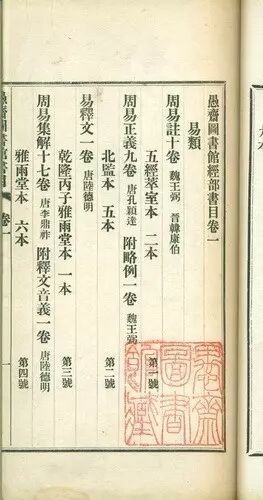 愚齋圖書館經部書目卷一
易類
周易註十卷 魏王弼 晉韓康伯
五經萃室本 二本 第一號
周易正義九卷 唐孔穎達 附略例一卷 魏王弼
北監本 五本 第二號
易釋文一卷 唐陸德明
乾隆丙子雅雨堂本 一本 第三號
周易集解十七卷 唐李鼎祚 附釋文音義一卷 唐陸德明
雅雨堂本 六本 第四號
愚齋圖書館書目 卷一 一
愚齋圖書館